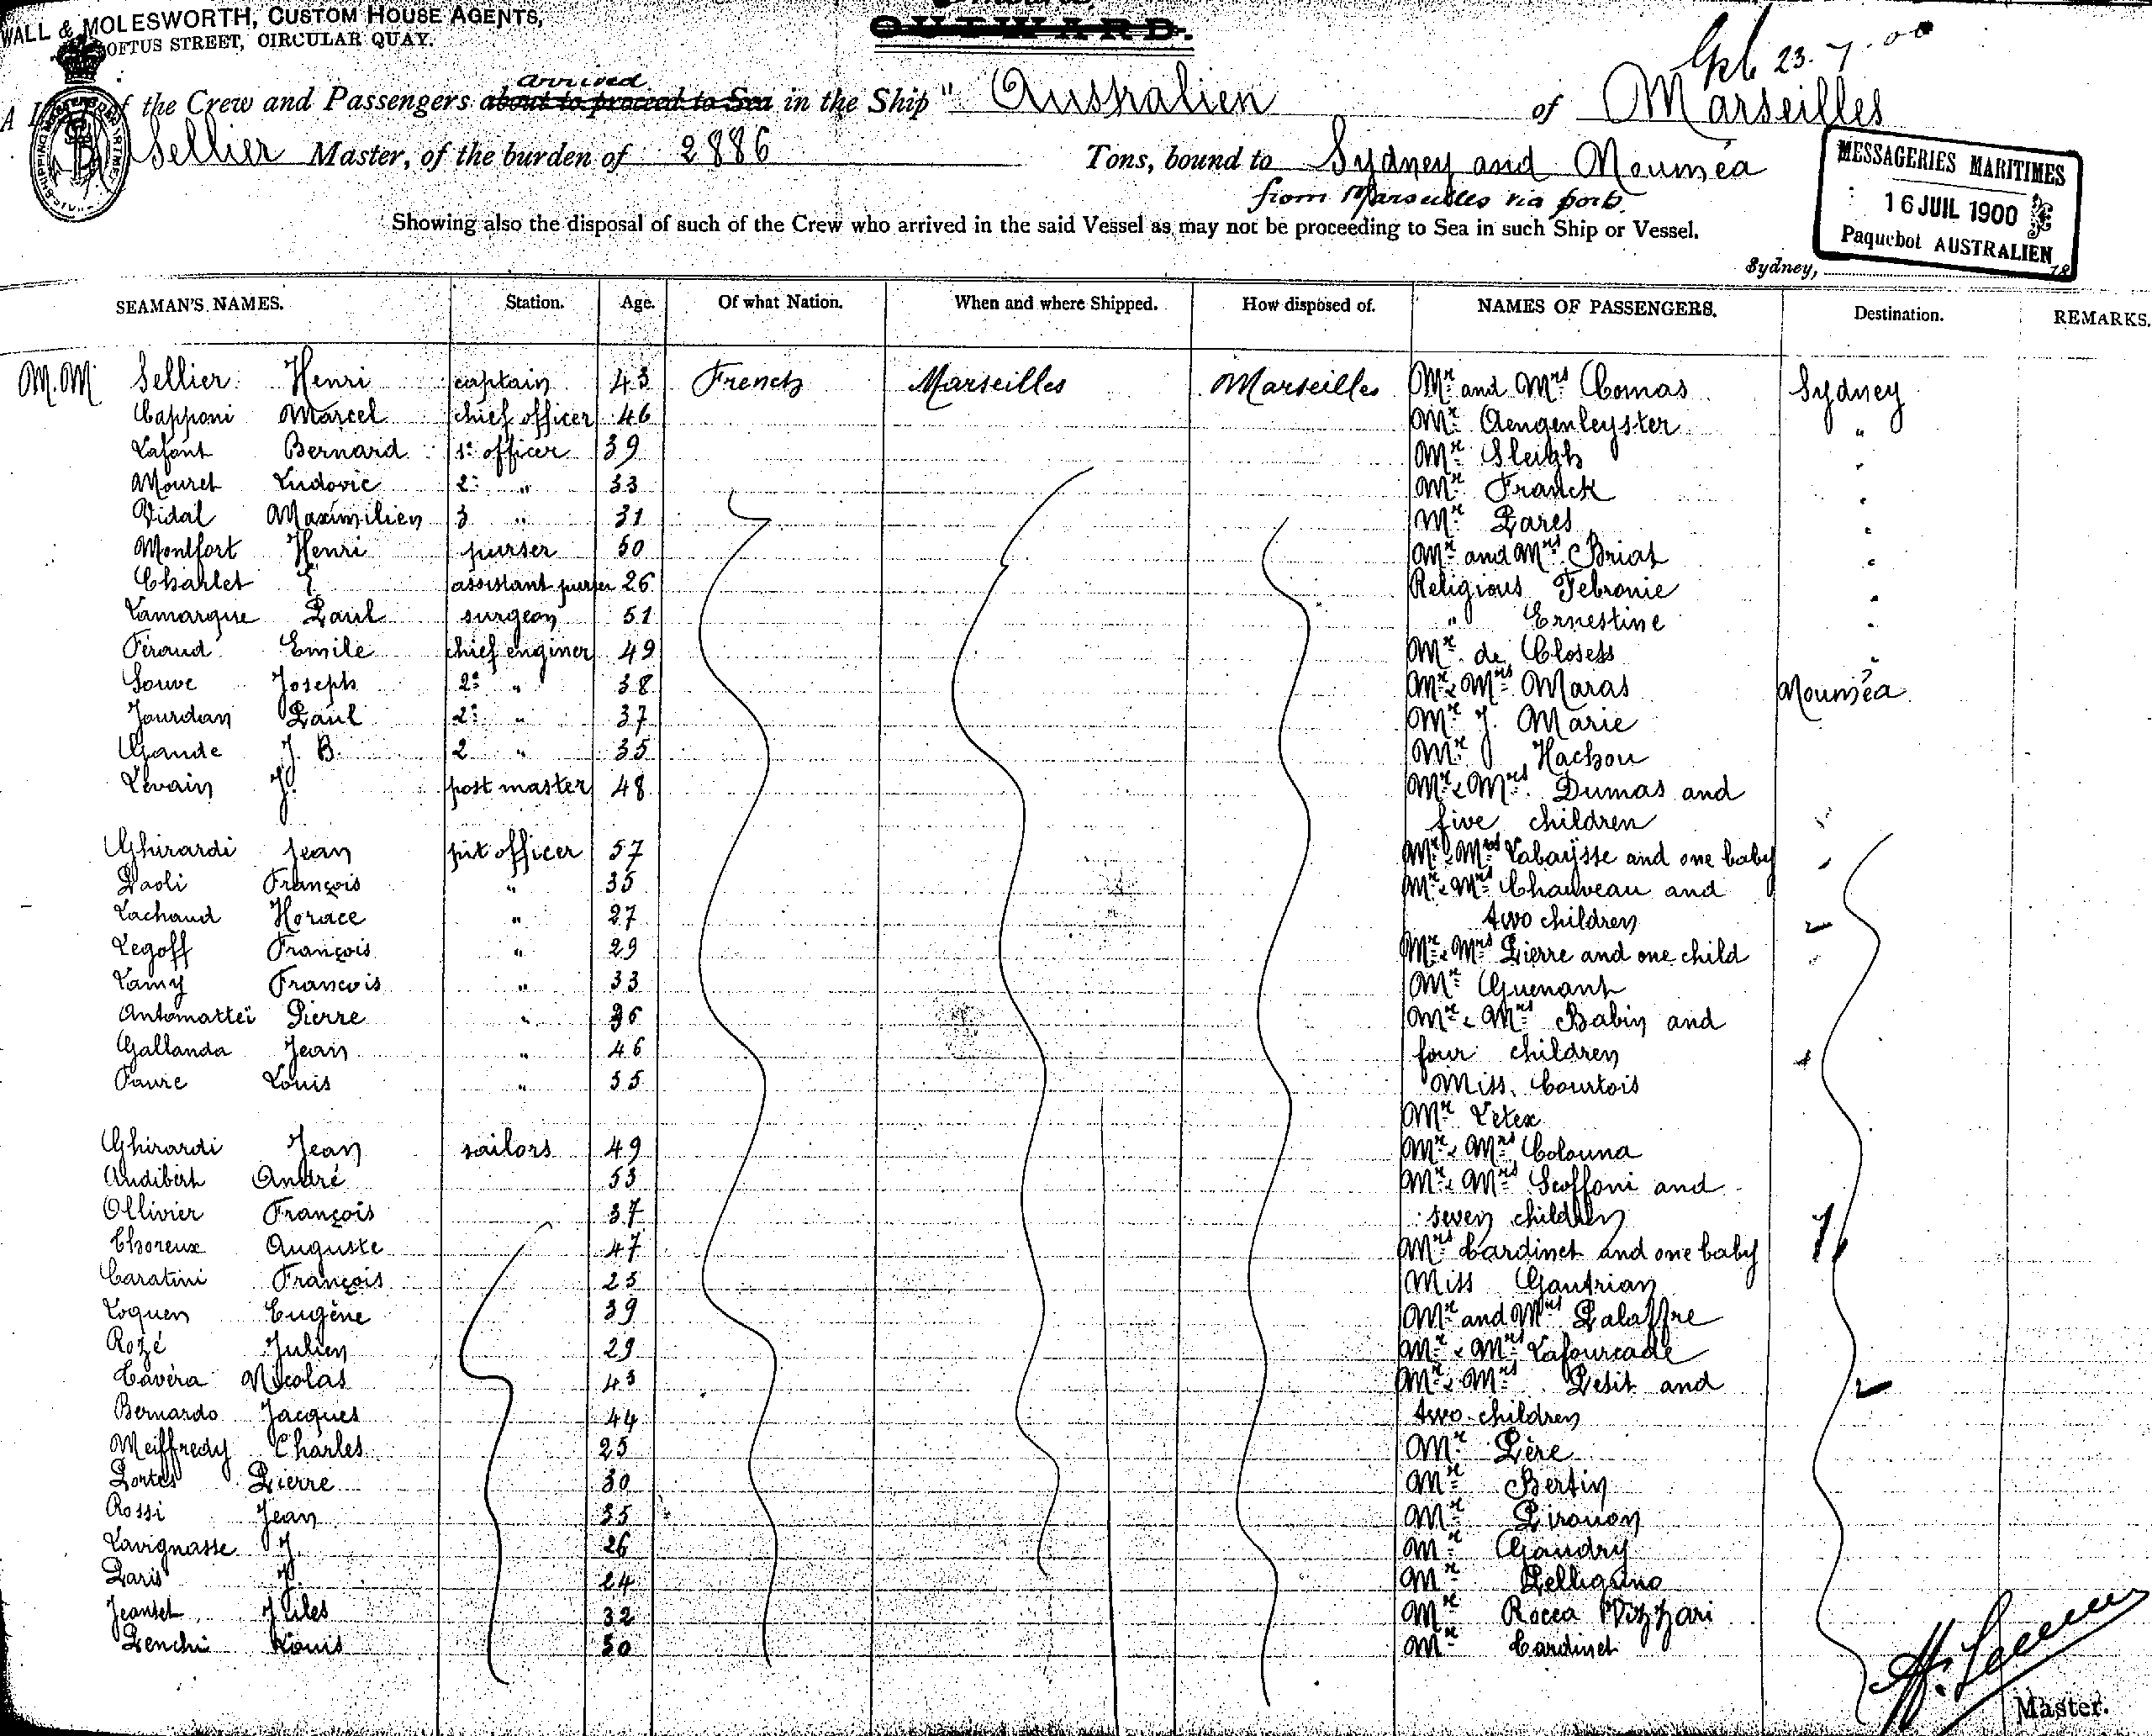 WALL & MOLESWORTH, CUSTOM HOUSE AGENTS,
LOFTUS STREET, CIRCULAR QUAY.
OUTWARD.
23-7-00
arrived
A List of the Crew and Passengers about to proceed to Sea in the Ship "Australien of Marseilles
Sellier Master, of the burden of 2886 Tons, bound to Sydney and Nouméa
from Marseilles via ports.
MESSAGERIES MARITIMES
16 JUIL 1900
Paquebot AUSTRALIEN
Showing also the disposal of such of the Crew who arrived in the said Vessel as may not be proceeding to Sea in such Ship or Vessel.
Sydney, 18
SEAMAN'S NAMES. Station. Age. Of what Nation. When and where Shipped. How disposed of. NAMES OF PASSENGERS. Destination. REMARKS.
M.M. Sellier Henri captain 43 French Marseilles Marseilles Mr and Mrs Comas Sydney
Capponi Marcel chief officer 46 Mr Aengenleyster "
Lafont Bernard 1r officer 39 Mr Sleigh "
Mouret Ludovic 2e " 33 Mr Franck "
Vidal Maximilien 3 " 31 Mr Pares "
Montfort Henri purser 50 Mr and Mrs Briat "
Charlet E assistant purser 26 Religious Febronie "
Lamarque Paul surgeon 51 " Ernestine "
Féraud Emile chief enginer 49 Mr de Closets "
Souve Joseph 2e " 38 Mr & Mrs Maras Nouméa
Jourdan Paul 2e " 37 Mr J. Marie
Gaude J. B. 2 " 35 Mr Hachou
Levain J. post master 48 Mr & Mrs Dumas and
five children
Ghirardi Jean pit officer 57 Mr & Mrs Labaysse and one baby
Paoli François " 35 Mr & Mrs Chauveau and
Lachaud Horace " 27 two children
Legoff François " 29 Mr & Mrs Pierre and one child
Lamy Francois " 33 Mr Guenant
Antomattei Pierre " 36 Mr & Mrs Babin and
Gallanda Jean " 46 four children
Favre Louis " 55 Miss Courtois
Mr Letex
Ghirardi Jean sailors 49 Mr & Mrs Colonna
Audibert André 53 Mr & Mrs Scoffoni and
Ollivier François 37 seven children
Choreux Auguste 47 Mrs Cardinet and one baby
Caratini François 25 Miss Gautrian
Loquen Eugène 39 Mr and Mrs Palaffre
Rozé Julien 29 Mr & Mrs Lafourcade
Cavéra Nicolas 43 Mr & Mrs Petit and
Bernardo Jacques 44 two children
Meiffredy Charles 25 Mr Père
Portes Pierre 30 Mr Bertin
Rossi Jean 35 Mr Pirouon
Lavignasse J. 26 Mr Gaudry
Paris J. 24 Mr Pelligrino
Jeantet Jules 32 Mr Rocca Vizzari
Penchi Louis 50 Mr Cardinet
Master.